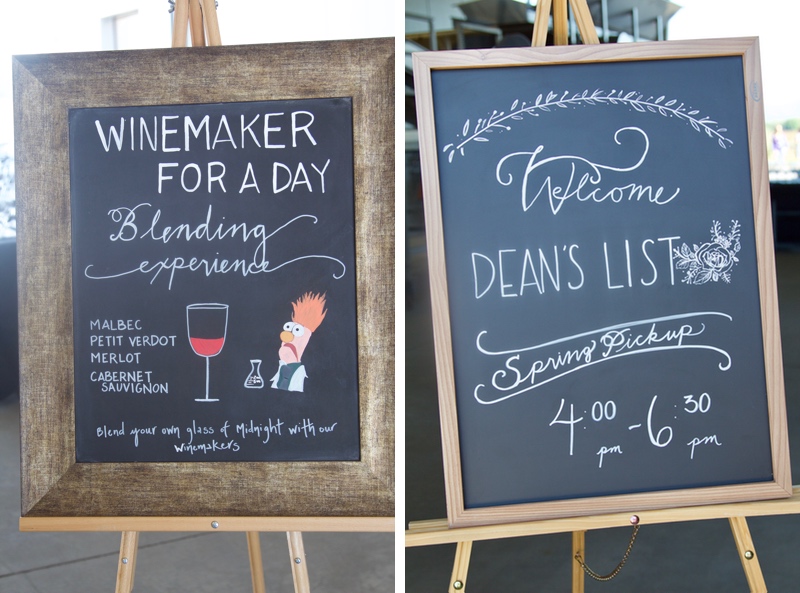 WINEMAKER
FOR A DAY
Blending
experience
MALBEC
PETIT VERDOT
MERLOT
CABERNET
SAUVIGNON
Blend your own glass of Midnight with our
winemakers
Welcome
DEAN'S LIST
Spring Pickup
4:00 pm - 6:30 pm